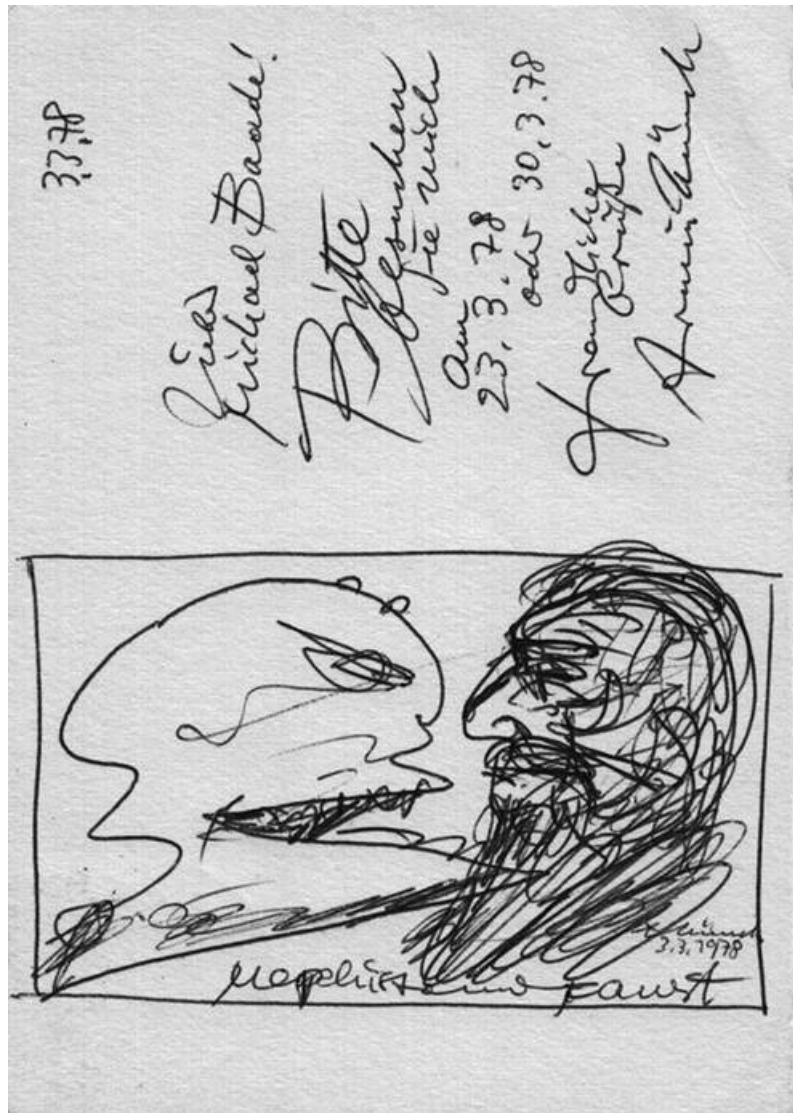 3.3.78
Lieber
Michael Baade!
Bitte
besuchen
Sie mich
am
23.3.78
oder 30.3.78
Freundliche
Grüße
Armin Münch
Münch
3.3.1978
Mephisto und Faust